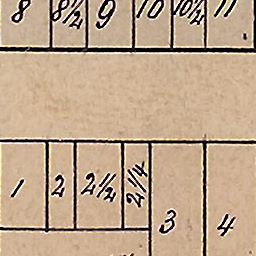 8 8½ 9 10 10½ 11
1 2 2½ 2¼ 3 4